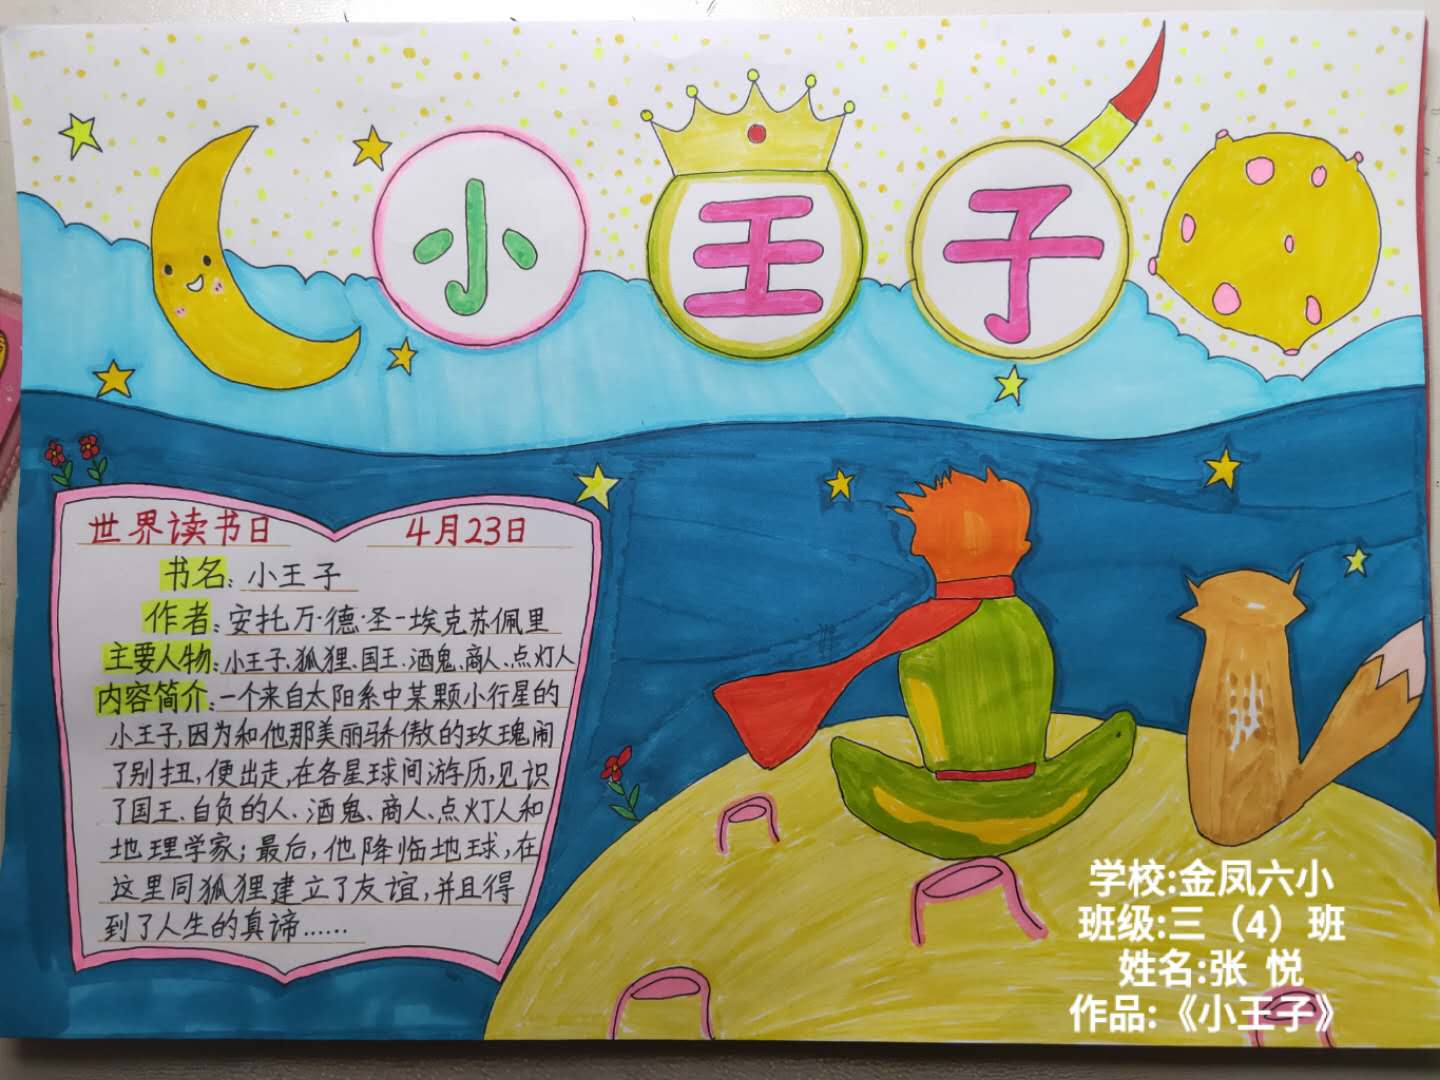 小王子
世界读书日 4月23日
书名:小王子
作者:安托万·德·圣-埃克苏佩里
主要人物:小王子、狐狸、国王、酒鬼、商人、点灯人
内容简介:一个来自太阳系中某颗小行星的
小王子,因为和他那美丽骄傲的玫瑰闹
了别扭,便出走,在各星球间游历,见识
了国王、自负的人、酒鬼、商人、点灯人和
地理学家;最后,他降临地球,在
这里同狐狸建立了友谊,并且得
到了人生的真谛……
学校:金凤六小
班级:三（4）班
姓名:张 悦
作品:《小王子》